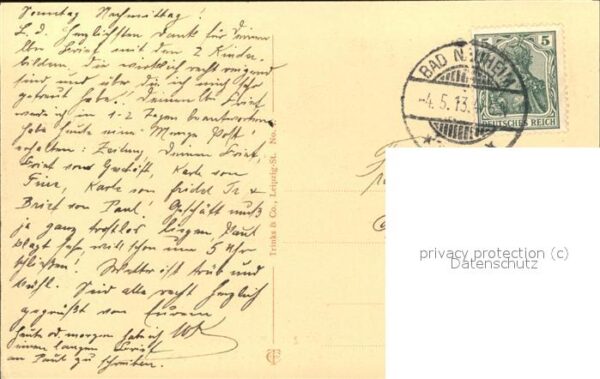 Sonntag Nachmittag!
L. d. herzlichsten Dank für Deinen
lbn Brief mit den 2 Kinder-
bildern die wirklich recht reizend
sind und über die ich mich sehr
gefreut habe! Deinen lbn Brief
werde ich in 1-2 Tagen beantworten
habe heute eine Menge Post
erhalten: Zeitung, Deinen Brief,
Brief vom Geschäft, Karte von
Karte von &
Brief von Paul! Geschäft muß
ja ganz trostlos liegen Paul
klagt sehr will schon um 5 Uhr
schließen! Wetter ist trüb und
kühl. Seid alle recht herzlich
gegrüßt von Eurem
Heute od. morgen habe ich
einen langen Brief
an Paul zu schreiben.
Trinks & Co., Leipzig-St. No.
BAD NAUHEIM
-4.5.13.
5
DEUTSCHES REICH
privacy protection (c)
Datenschutz